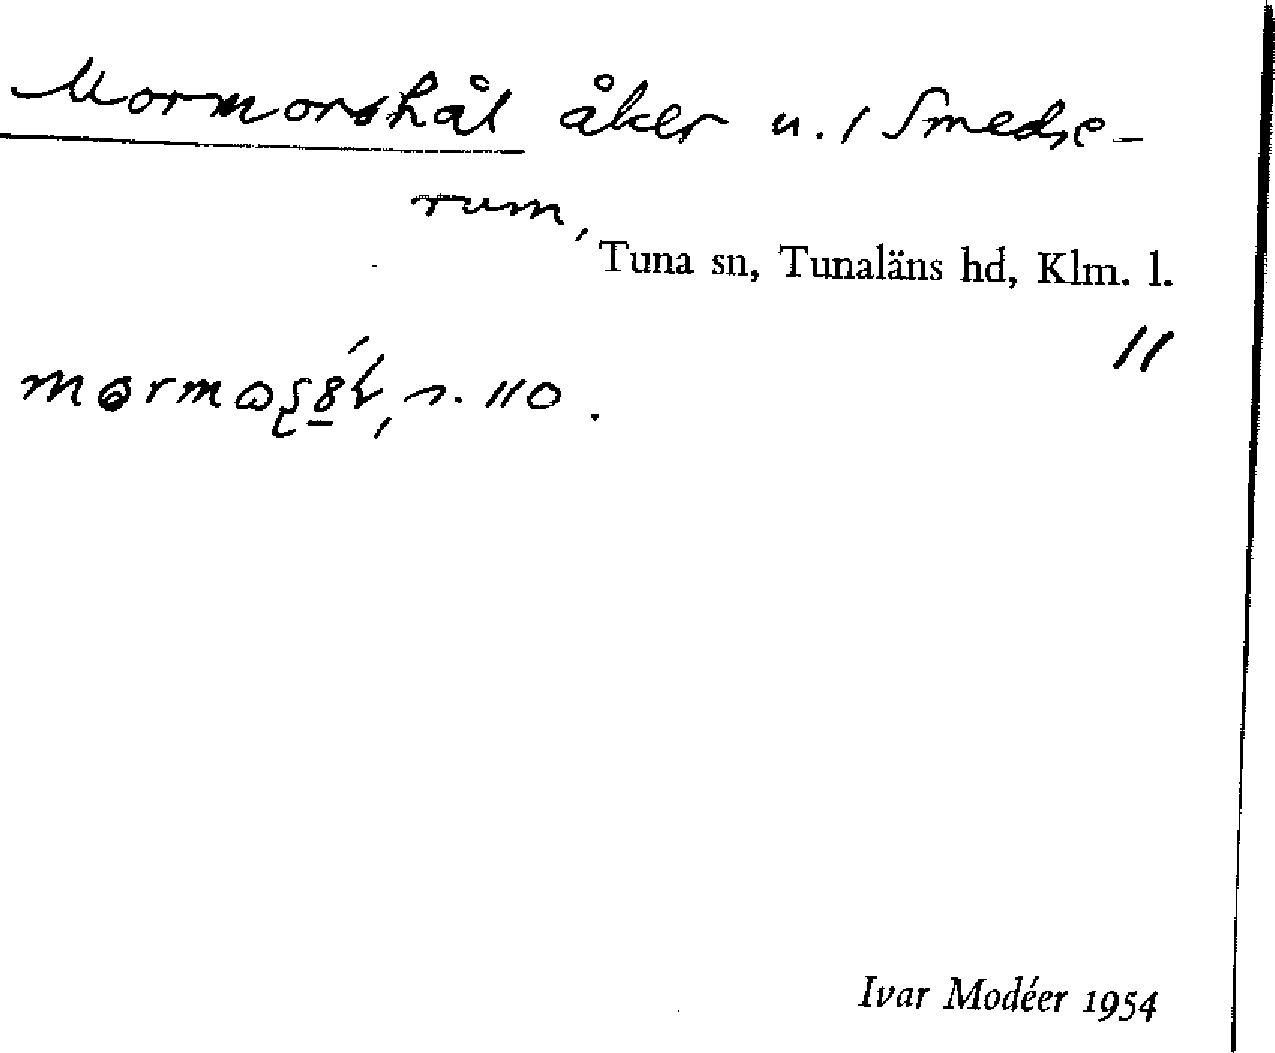 Mormorshål åker u. / Smedse-
rum,
Tuna sn, Tunaläns hd, Klm. l.
11
s. 110.
Ivar Modéer 1954